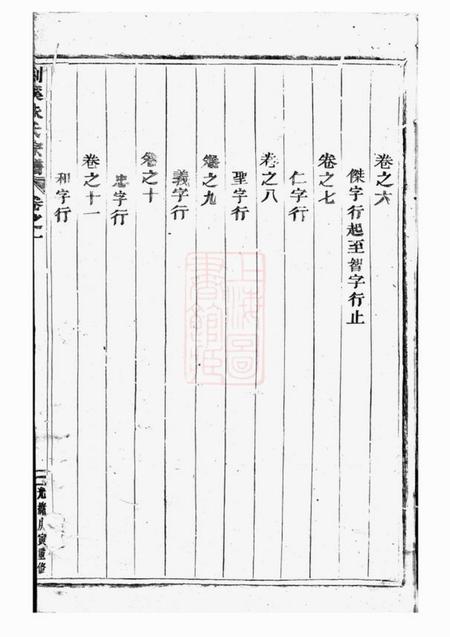 卷之六
傑字行起至智字行止
卷之七
仁字行
卷之八
聖字行
卷之九
義字行
卷之十
忠字行
卷之十一
和字行
剡溪 氏宗譜 卷之一
光緒戊寅重修
上海圖書館藏